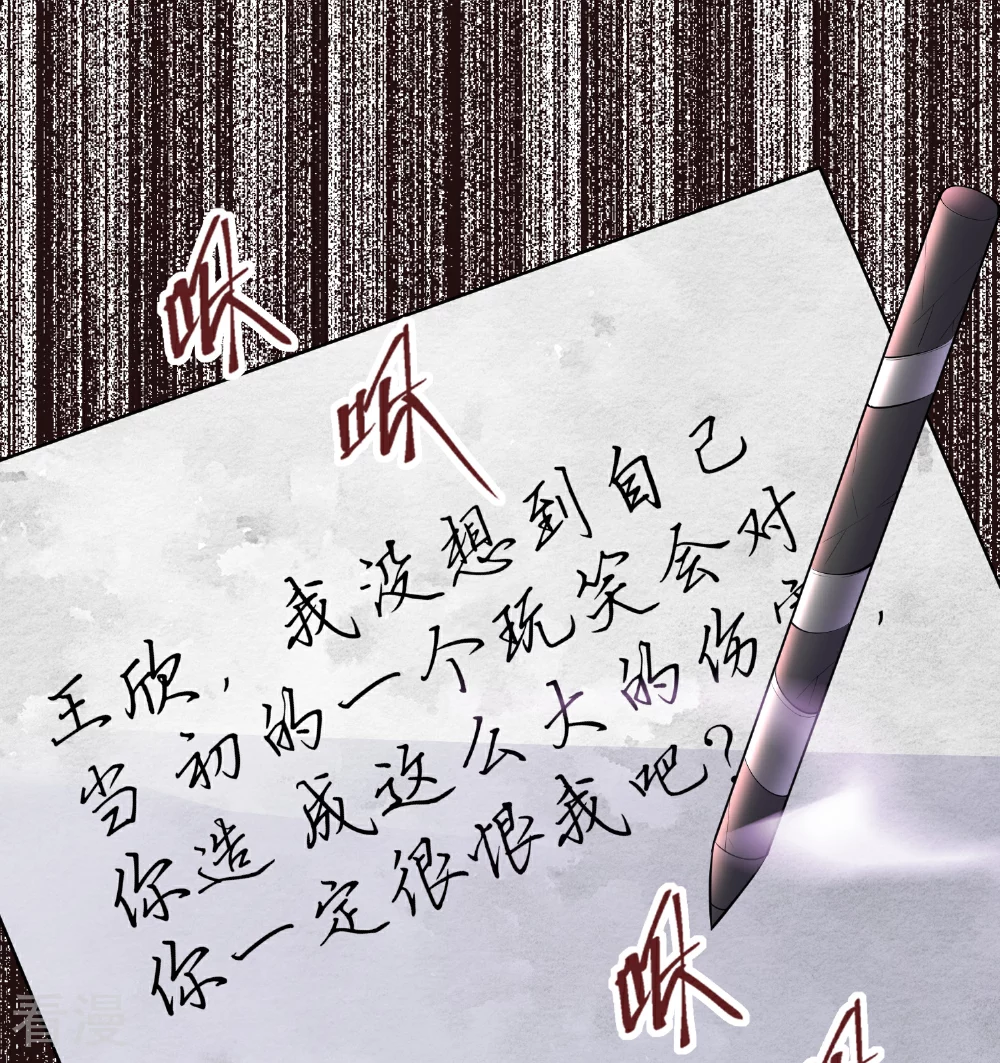 唰
唰
王欣，我没想到自己
当初的一个玩笑会对
你造成这么大的伤害，
你一定很恨我吧？
看漫